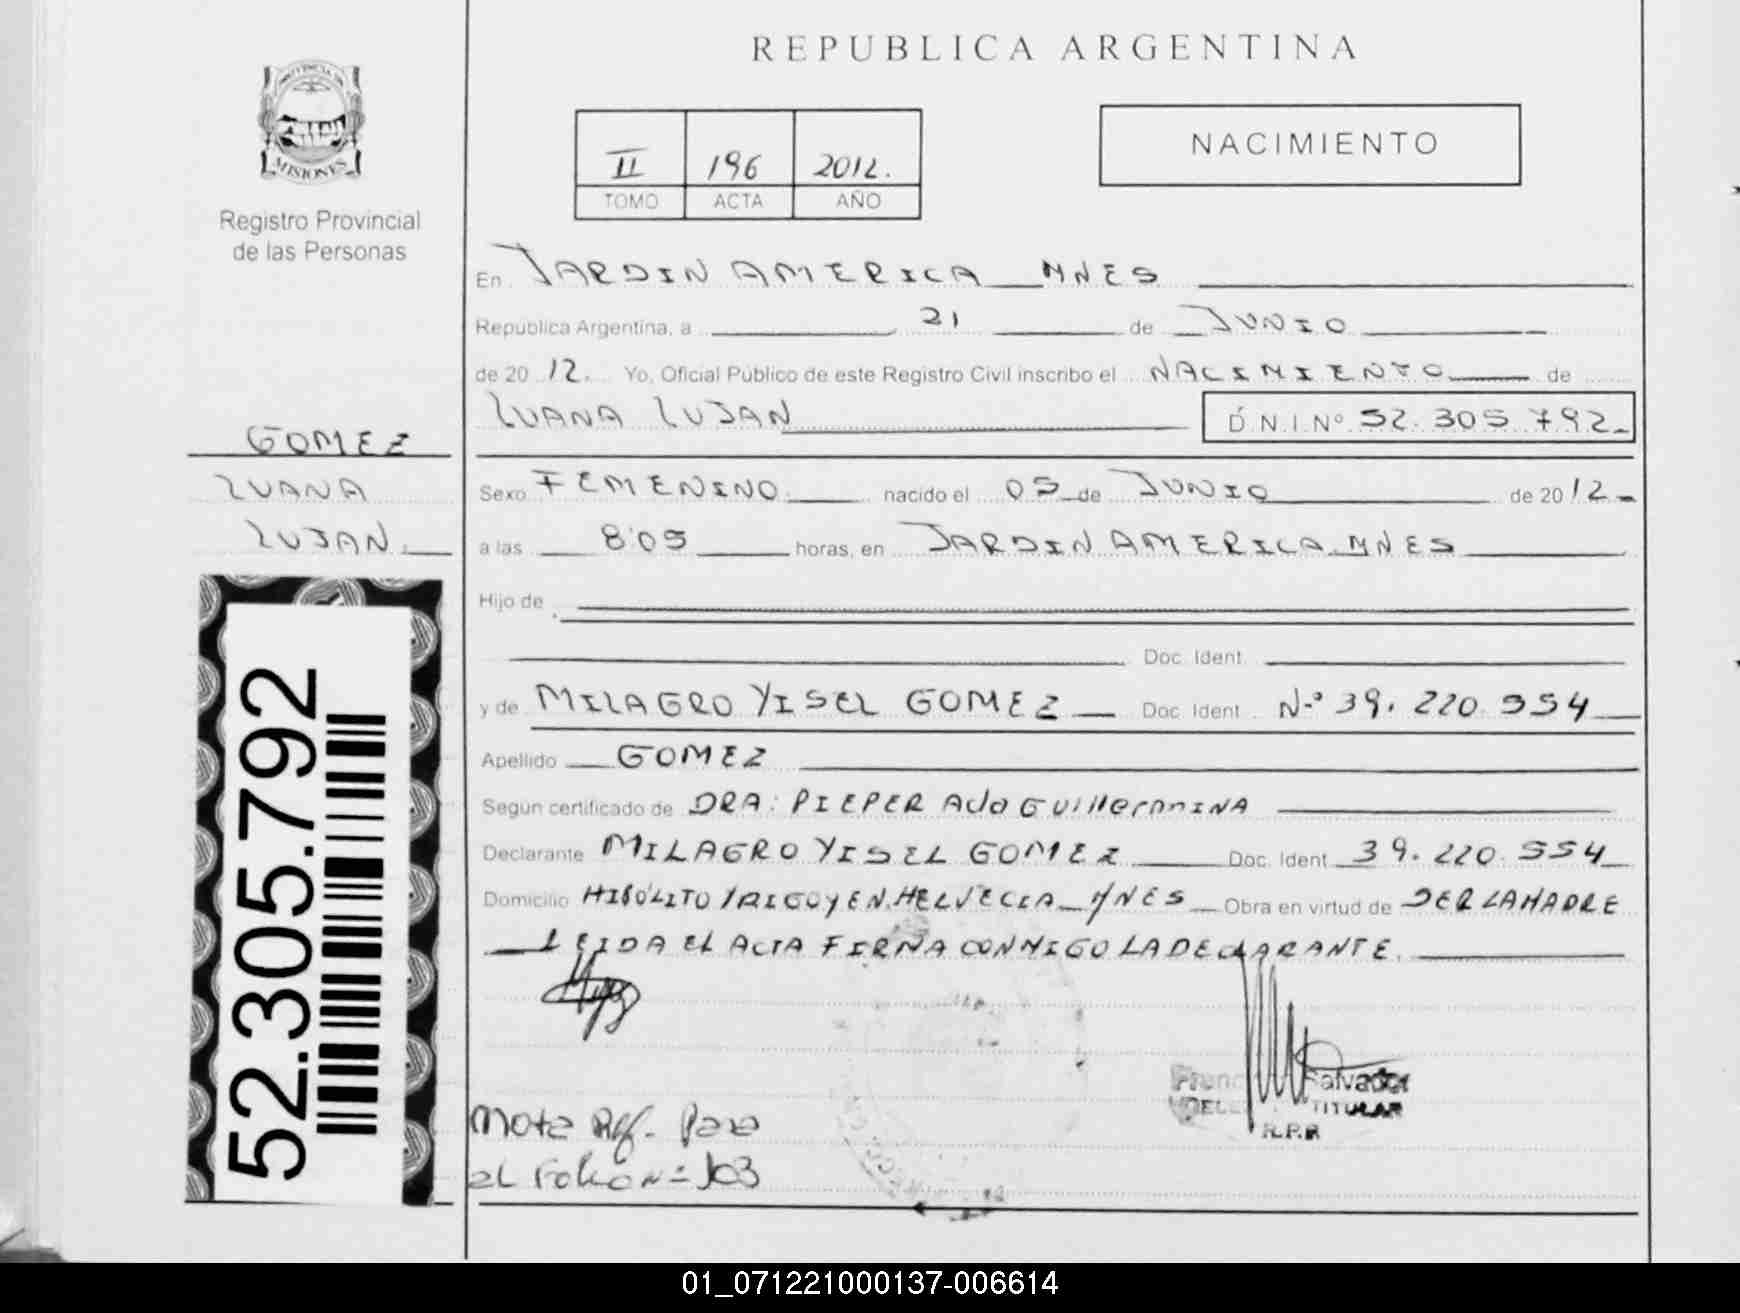 REPUBLICA ARGENTINA
PROVINCIA DE
MISIONES
Registro Provincial
de las Personas
II 196 2012.
TOMO ACTA AÑO
NACIMIENTO
En JARDIN AMERICA MNES
República Argentina, a 21 de JUNIO
de 20 12. Yo, Oficial Público de este Registro Civil inscribo el NACIMIENTO de
LUANA LUJAN D.N.I.Nº 52.305.792
GOMEZ
LUANA
LUJAN
Sexo FEMENINO nacido el 05 de JUNIO de 20 12
a las 8:05 horas, en JARDIN AMERICA. MNES
Hijo de
Doc. Ident.
y de MILAGRO YISEL GOMEZ Doc. Ident. Nº 39.220.554
Apellido GOMEZ
Según certificado de DRA: PIEPER Guillermina
Declarante MILAGRO YISEL GOMEZ Doc. Ident. 39.220.554
Domicilio HIPOLITO YRIGOYEN. HELVECIA MNES Obra en virtud de SER LA MADRE
LEIDA EL ACTA FIRMA CONMIGO LA DECLARANTE.
52.305.792
Salvador
TITULAR
R.P.P
Nota Ref. Para
el Folio Nº 103
01_071221000137-006614